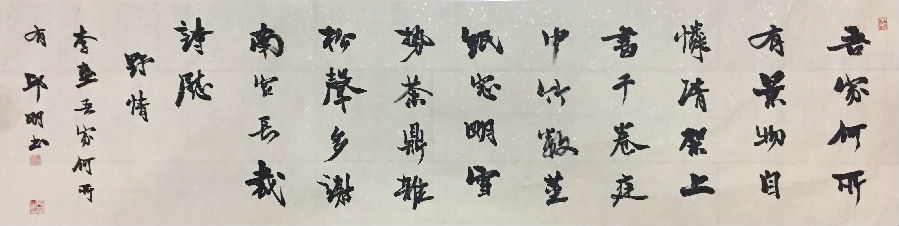 吾家何所
有景物自
憐清架上
書千卷庭
中竹數莖
紙窓明雪
勢茶鼎雜
松聲多謝
南宮長裁
詩慰
野情
李至吾家何所
有 邱明书